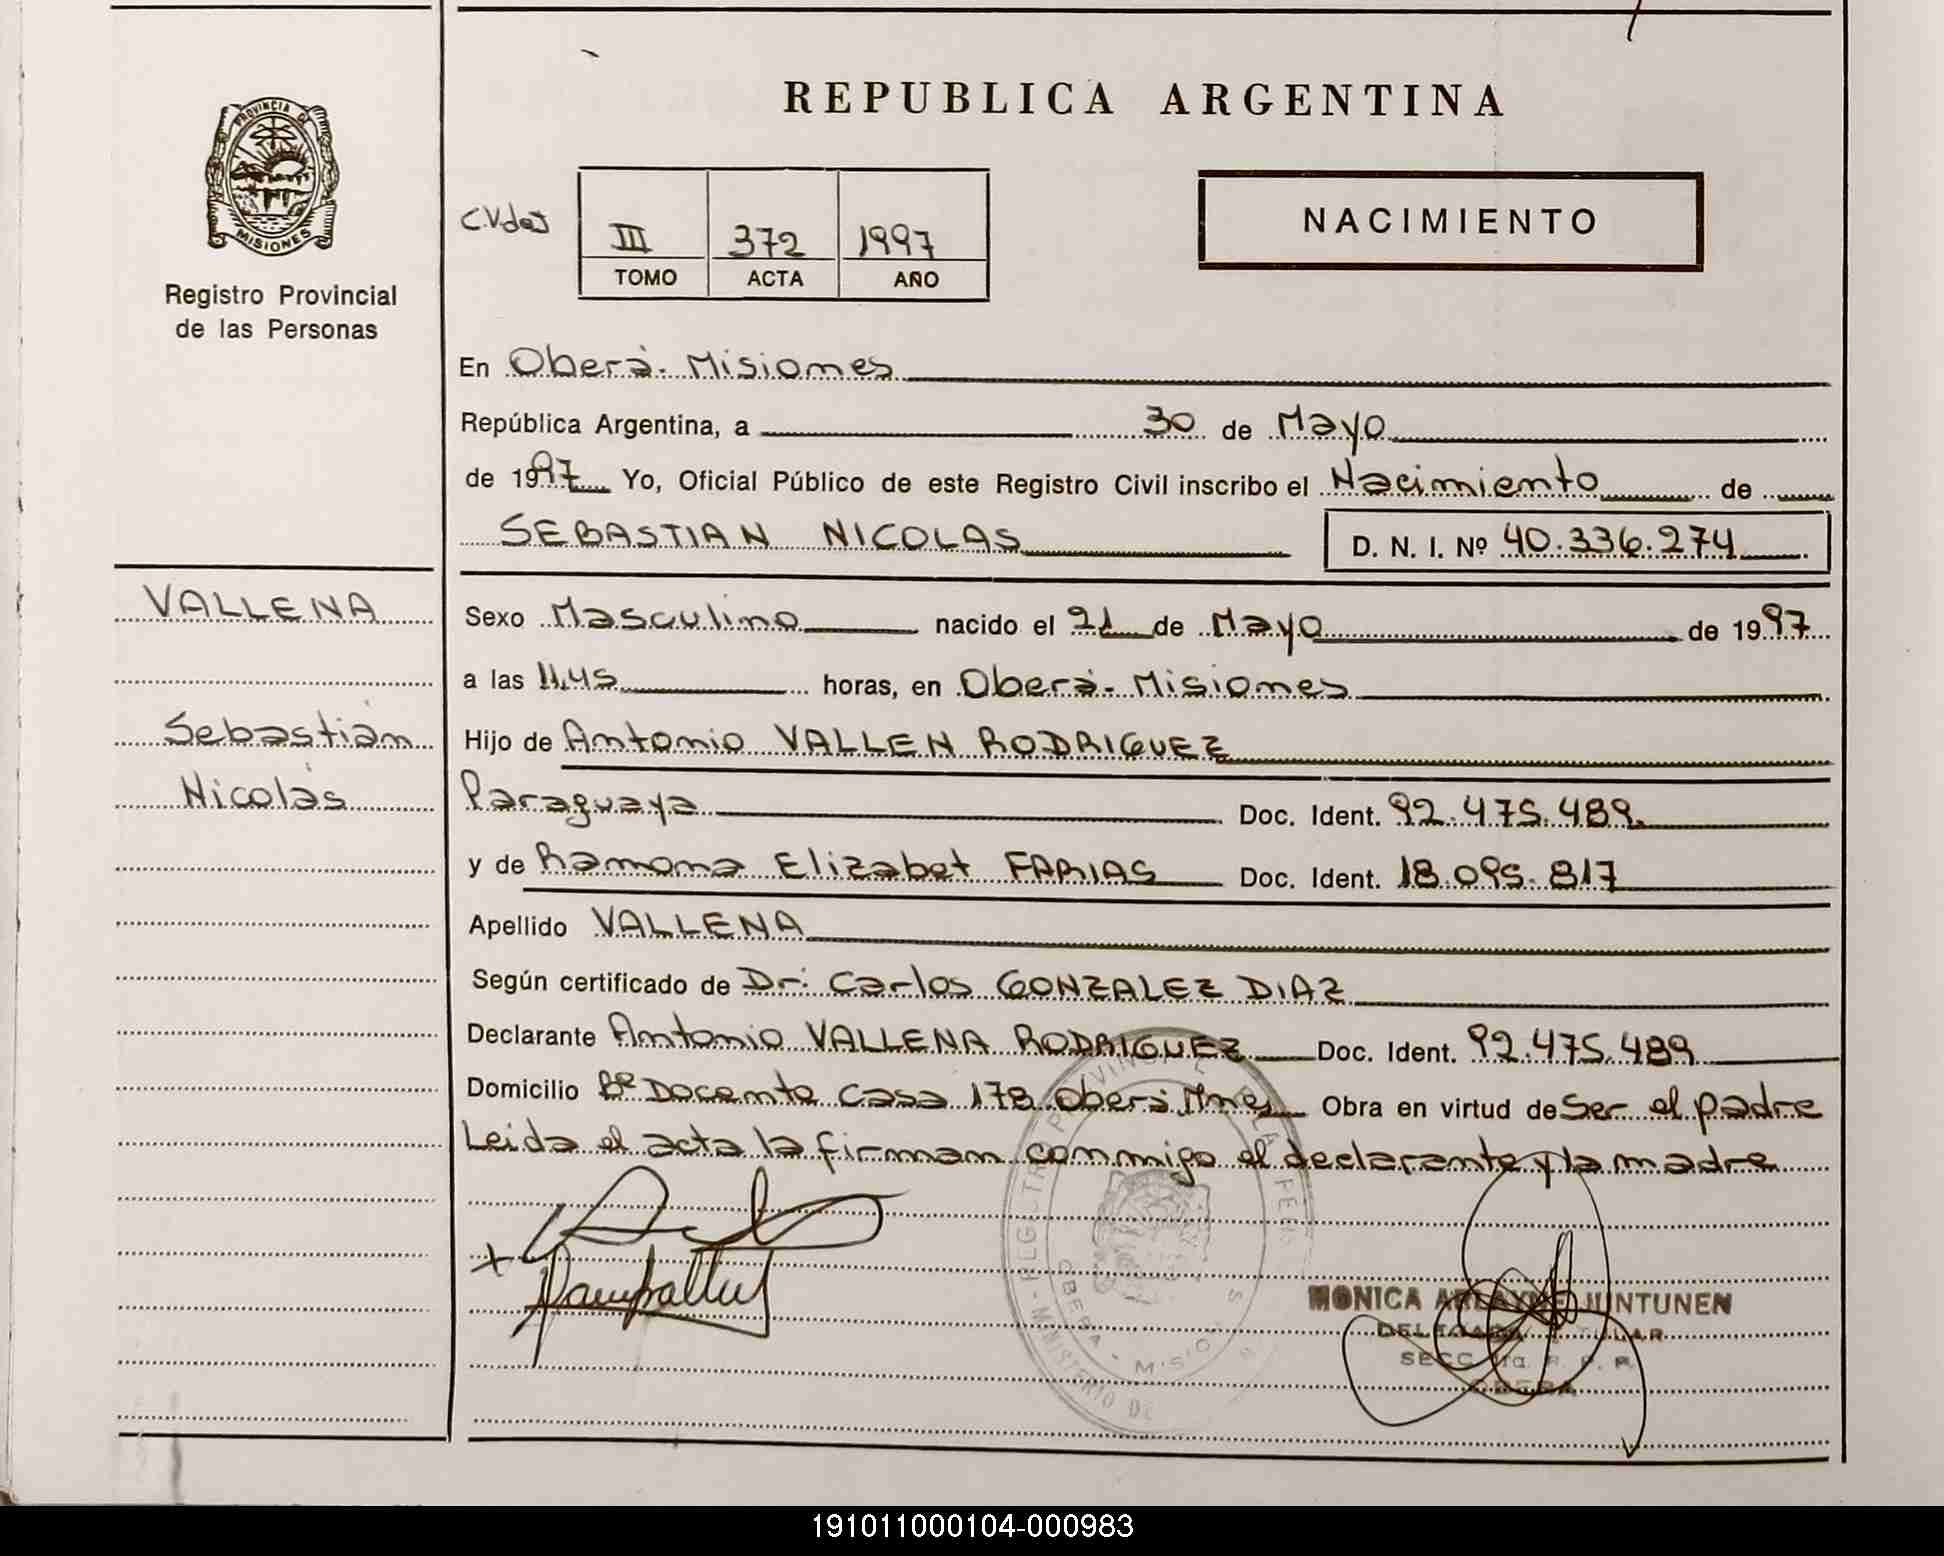 REPUBLICA ARGENTINA
PROVINCIA DE
MISIONES
Registro Provincial
de las Personas
III 372 1997
TOMO ACTA AÑO
NACIMIENTO
En Oberá. Misiones
República Argentina, a 30 de Mayo
de 1997 Yo, Oficial Público de este Registro Civil inscribo el Nacimiento de
SEBASTIAN NICOLAS D. N. I. Nº 40.336.274
VALLENA
Sebastián
Nicolás
Sexo Masculino nacido el 21 de Mayo de 1997
a las 11,45 horas, en Oberá. Misiones
Hijo de Antonio VALLEN RODRIGUEZ
Paraguaya Doc. Ident. 92.475.489
y de Ramona Elizabet FARIAS Doc. Ident. 18.095.817
Apellido VALLENA
Según certificado de Dr. Carlos GONZALEZ DIAZ
Declarante Antonio VALLENA RODRIGUEZ Doc. Ident. 92.475.489
Domicilio Bº Docente Casa 178 Oberá Mnes Obra en virtud de Ser el padre
Leida el acta la firman conmigo el declarante y la madre
MONICA ARLAYNE JUNTUNEN
DELEGADA TITULAR
SECC. 1ra. R. P. P.
OBERA
191011000104-000983